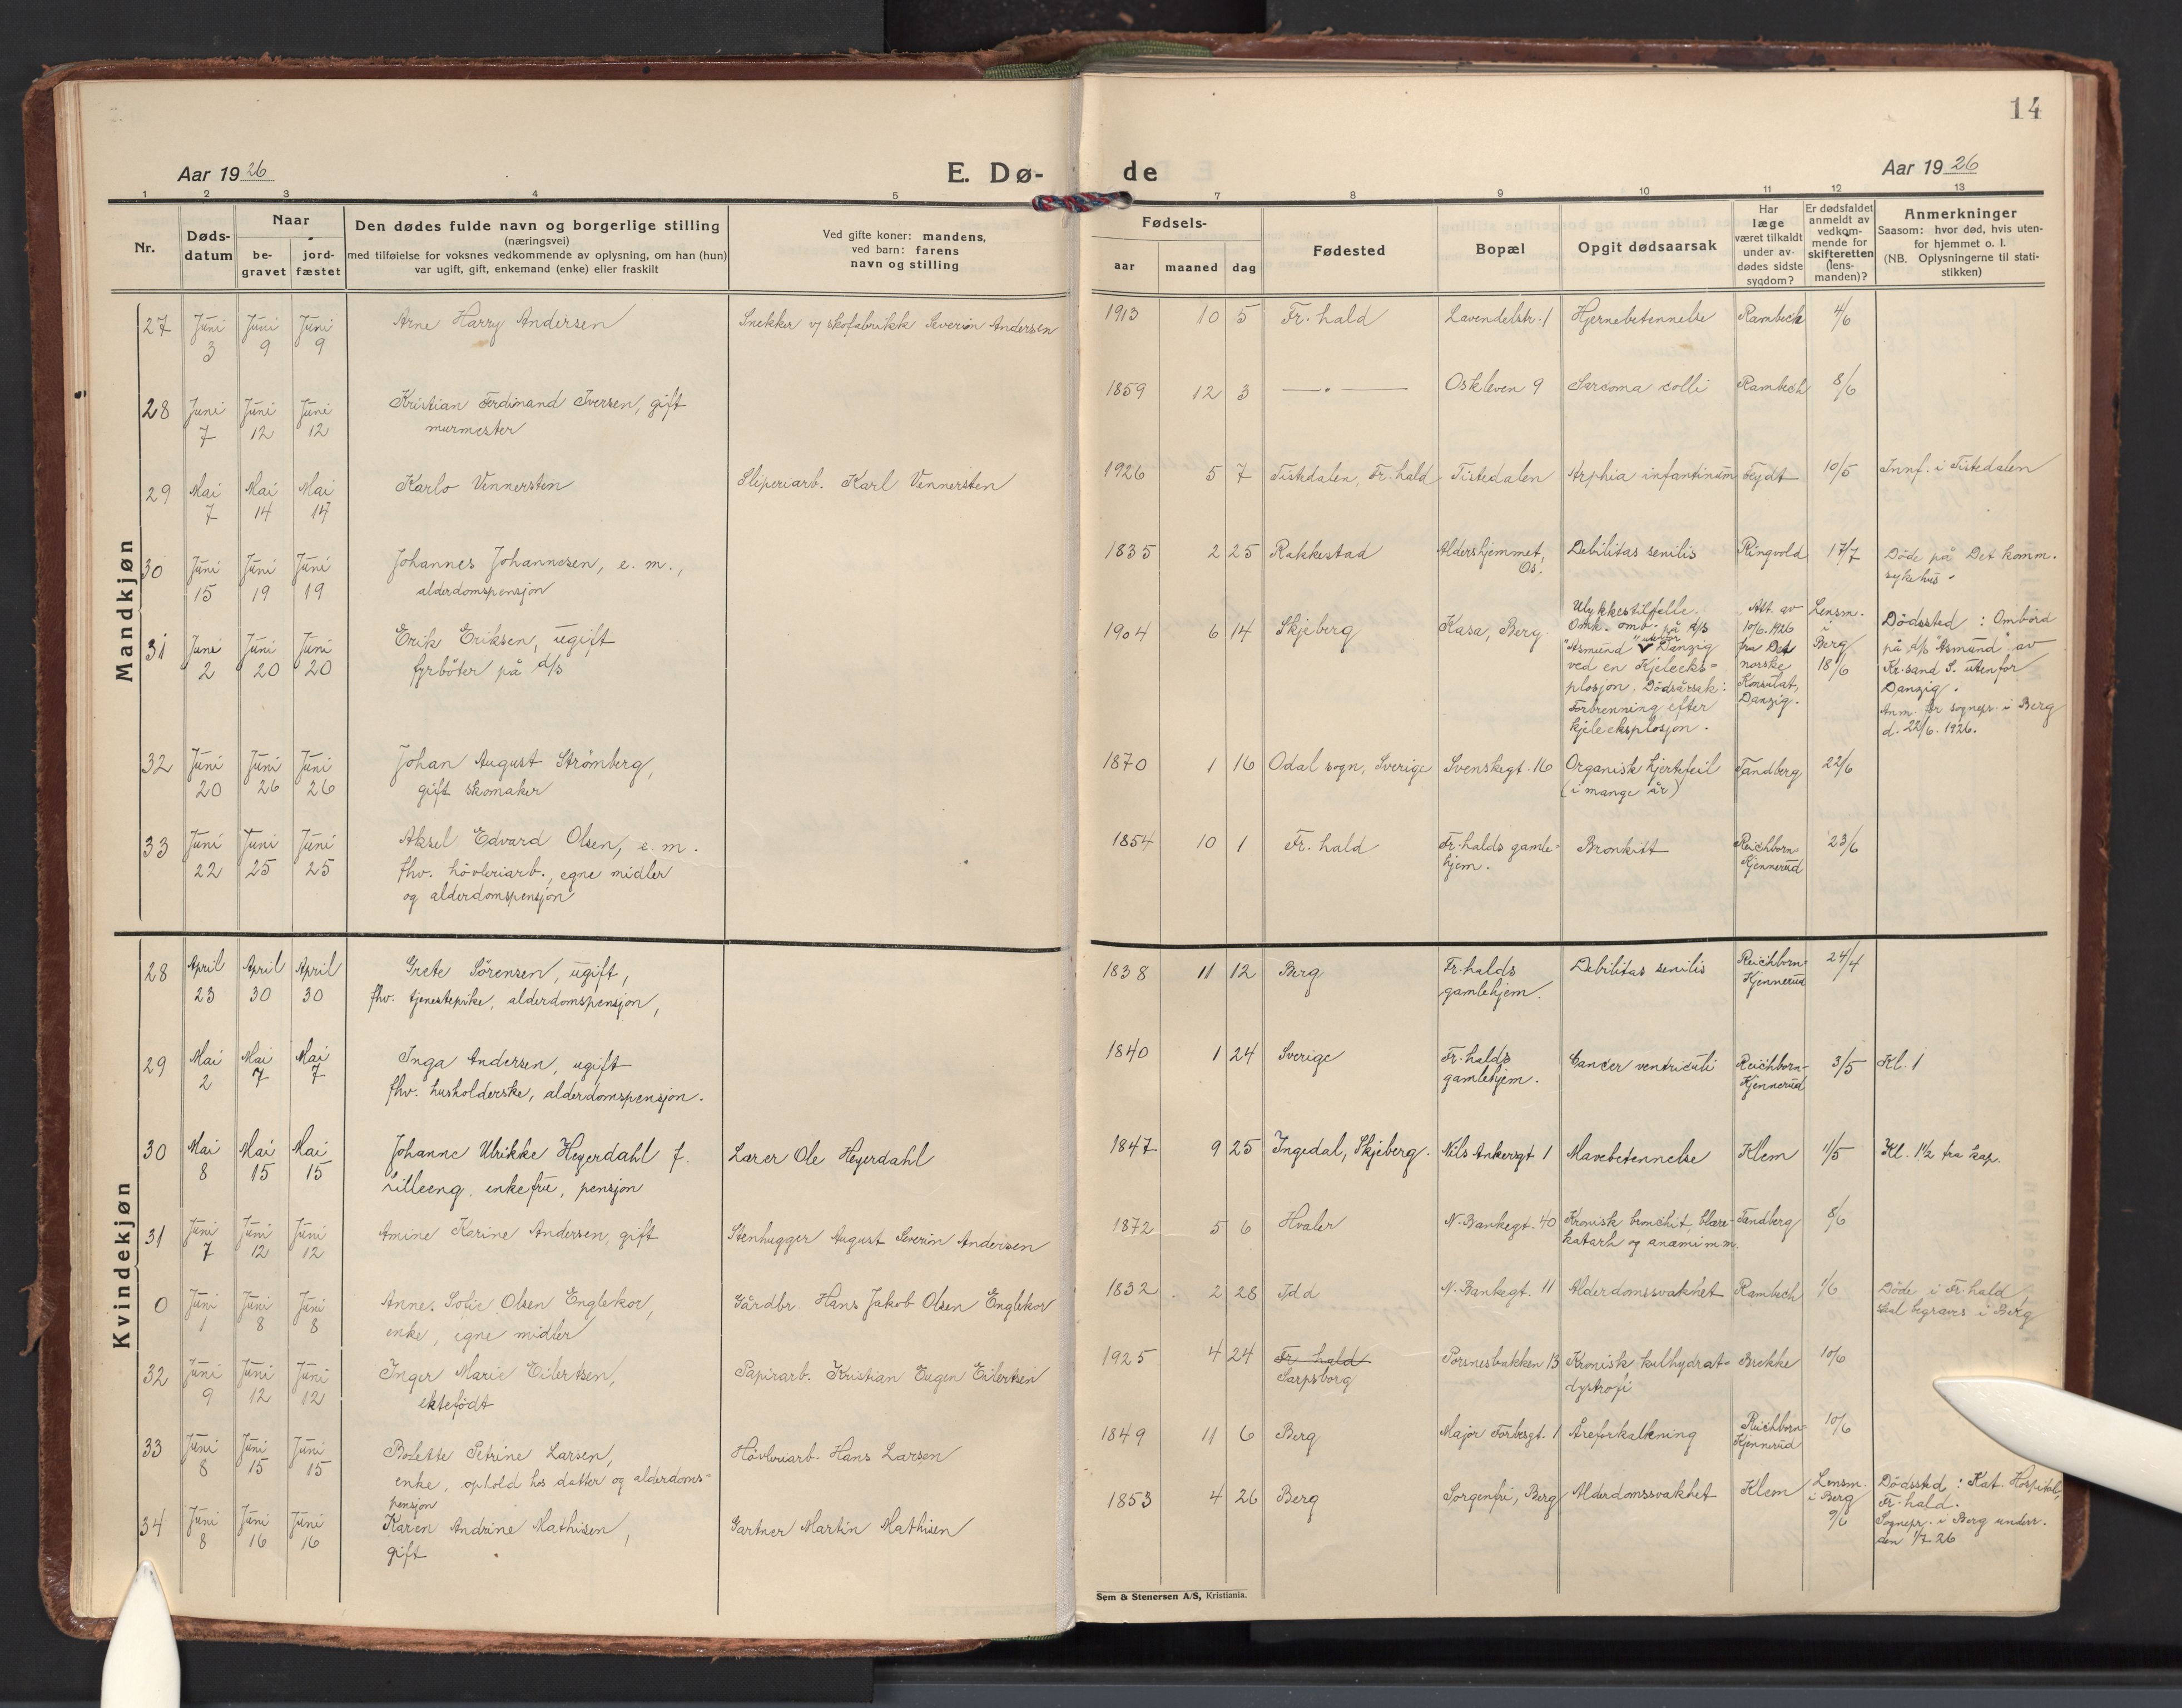 14
Aar 1926
E. Dø-
de
Aar 1926
1 2 3 4 5 7 8 9 10 11 12 13
Nr.
Døds-
datum
Naar
be-
gravet
jord-
fæstet
Den dødes fulde navn og borgerlige stilling
(næringsvei)
med tilføielse for voksnes vedkommende av oplysning, om han (hun)
var ugift, gift, enkemand (enke) eller fraskilt
Ved gifte koner: mandens,
ved barn: farens
navn og stilling
Fødsels-
aar maaned dag
Fødested
Bopæl
Opgit dødsaarsak
Har
læge
været tilkaldt
under av-
dødes sidste
sygdom?
Er dødsfaldet
anmeldt av
vedkom-
mende for
skifteretten
(lens-
manden)?
Anmerkninger
Saasom: hvor død, hvis uten-
for hjemmet o. l.
(NB. Oplysningerne til stati-
stikken)
Mandkjøn
27 Juni Juni Juni Arne Harry Andersen Snekker v/ skofabrikk Severin Andersen 1913 10 5 Fr.hald Lavendelstr. 1 Hjernebetennelse Rambech 4/6
3 9 9
28 Juni Juni Juni Kristian Ferdinand Iversen, gift 1859 12 3 —〃— Oskleven 9 Sarcoma colli Rambech 8/6
7 12 12 murmester
29 Mai Mai Mai Karlo Vennersten Sliperiarb. Karl Vennersten 1926 5 7 Tistedalen, Fr.hald Tistedalen infantinum Feydt 10/5 Innf. i Tistedalen
7 14 14
30 Juni Juni Juni Johannes Johannesen, e. m., 1835 2 25 Rakkestad Aldershjemmet, Debilitas senilis Ringvold 17/7 Døde på Det komm.
15 19 19 alderdomspensjon Os. sykehus.
31 Juni Juni Juni Erik Eriksen, ugift 1904 6 14 Skjeberg Kasa, Berg
2 20 20 fyrbøter på d/s
Ulykkestilfelle.
Omk. omb. på d/s
"Asmund" utenfor Danzig
ved en Kjeleeks=
plosjon. Dødsårsak:
Forbrenning efter
kjeleeksplosjon.
Att. av
10/6. 1926
fra Det
norske
Konsulat,
Danzig.
Lensm.
i
Berg
18/6
Dödssted: Ombord
på d/s "Asmund" av
Kr.sand S. utenfor
Danzig.
Anm. for sognepr. i Berg
d. 22/6. 1926.
32 Juni Juni Juni Johan August Strömberg, 1870 1 16 Odal sogn, Sverige Svenskegt. 16 Organisk hjertefeil Tandberg 22/6
20 26 26 gift skomaker (i mange år)
33 Juni Juni Juni Aksel Edvard Olsen, e. m. 1854 10 1 Fr.hald Fr.halds gamle= Bronkitt Reichborn- 23/6
22 25 25 fhv. hövleriarb., egne midler hjem. Kjennerud
og alderdomspensjon
Kvindekjøn
28 April April April Grete Sörensen, ugift, 1838 11 12 Berg Fr.halds Debilitas senilis Reichborn= 24/4
23 30 30 fhv. tjenestepike, alderdomspensjon, gamlehjem. Kjennerud
29 Mai Mai Mai Inga Andersen, ugift 1840 1 24 Sverige Fr.halds Cancer ventriculi Reichborn- 3/5 Kl. 1
2 7 7 fhv. husholderske, alderdomspensjon. gamlehjem. Kjennerud
30 Mai Mai Mai Johanne Ulrikke Heyerdahl f. Lærer Ole Heyerdahl 1847 9 25 Ingedal, Skjeberg. Nils Ankersgt 1 Mavebetennelse Klem 11/5 Kl. 1½ fra kap.
8 15 15 Lilleeng. enkefru, pensjon
31 Juni Juni Juni Amine Karine Andersen, gift Stenhugger August Severin Andersen 1872 5 6 Hvaler N. Bankegt. 40 Kronisk bronchit blære- Tandberg 8/6
7 12 12 katarh og anæmi m.m.
0 Juni Juni Juni Anne. Sofie Olsen Englekor, Gårdbr. Hans Jakob Olsen Englekor 1832 2 28 Idd N. Bankegt. 11 Alderdomssvakhet Rambech 1/6 Döde i Fr.hald
1 8 8 enke, egne midler skal begraves i Berg
32 Juni Juni Juni Inger Marie Eilertsen, Papirarb. Kristian Eugen Eilertsen 1925 4 24 Fr hald Porsnesbakken 13 Kronisk kulhydrat- Brekke 10/6
9 12 12 ektefödt Sarpsborg dystrofi
33 Juni Juni Juni Bolette Petrine Larsen, Hövleriarb. Hans Larsen 1849 11 6 Berg Major Forbergt. 1 Åreforkalkning Reichborn= 10/6
8 15 15 enke, ophold hos datter og alderdoms= Kjennerud
pensjon
34 Juni Juni Juni Karen Andrine Mathisen, Gartner Martin Mathisen 1853 4 26 Berg Sorgenfri, Berg Alderdomssvakhet Klem
8 16 16 gift
Lensm.
i Berg
9/6
Dödssted: Kat. Hospital,
Fr.hald.
Sognepr. i Berg underr.
den 1/7 26
Sem & Stenersen A/S, Kristiania.